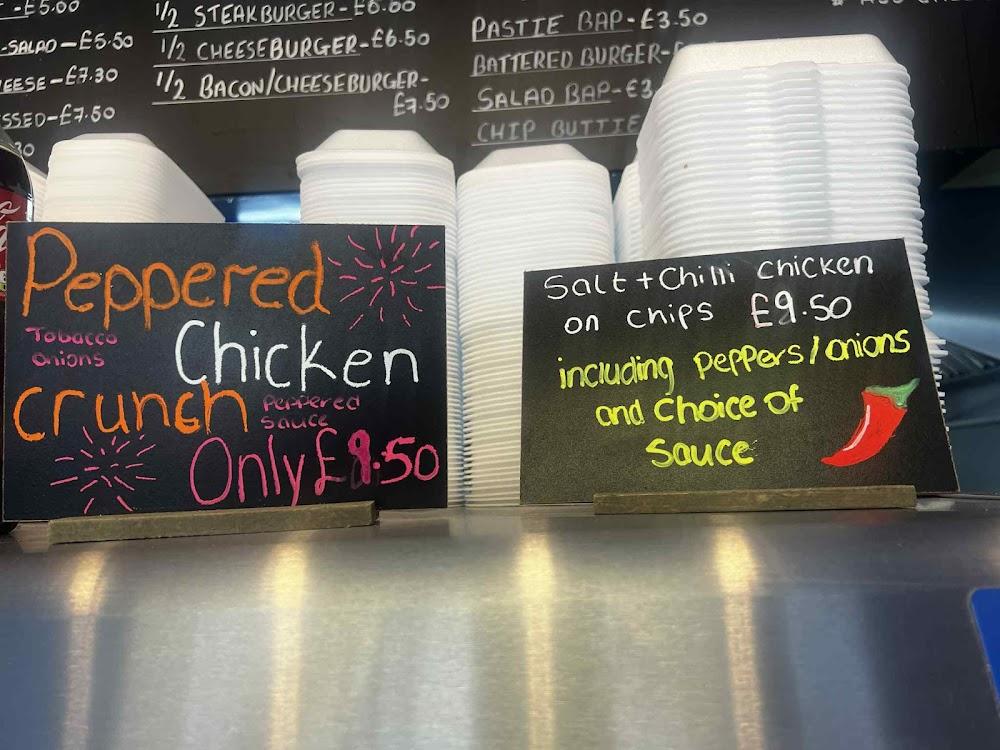 -£5.00
-SALAD-£5.50
EESE-£7.30
SSED-£7.50
30
1/2 STEAK BURGER-£6.00
1/2 CHEESEBURGER-£6.50
1/2 BACON/CHEESEBURGER-
£7.50
PASTIE BAP-£3.50
BATTERED BURGER-£
SALAD BAP-£3
CHIP BUTTIE
Peppered
Tobacco
onions
Chicken
crunch
Peppered
sauce
Only £9.50
Salt + Chilli Chicken
on chips £9.50
including peppers/onions
and choice of
sauce